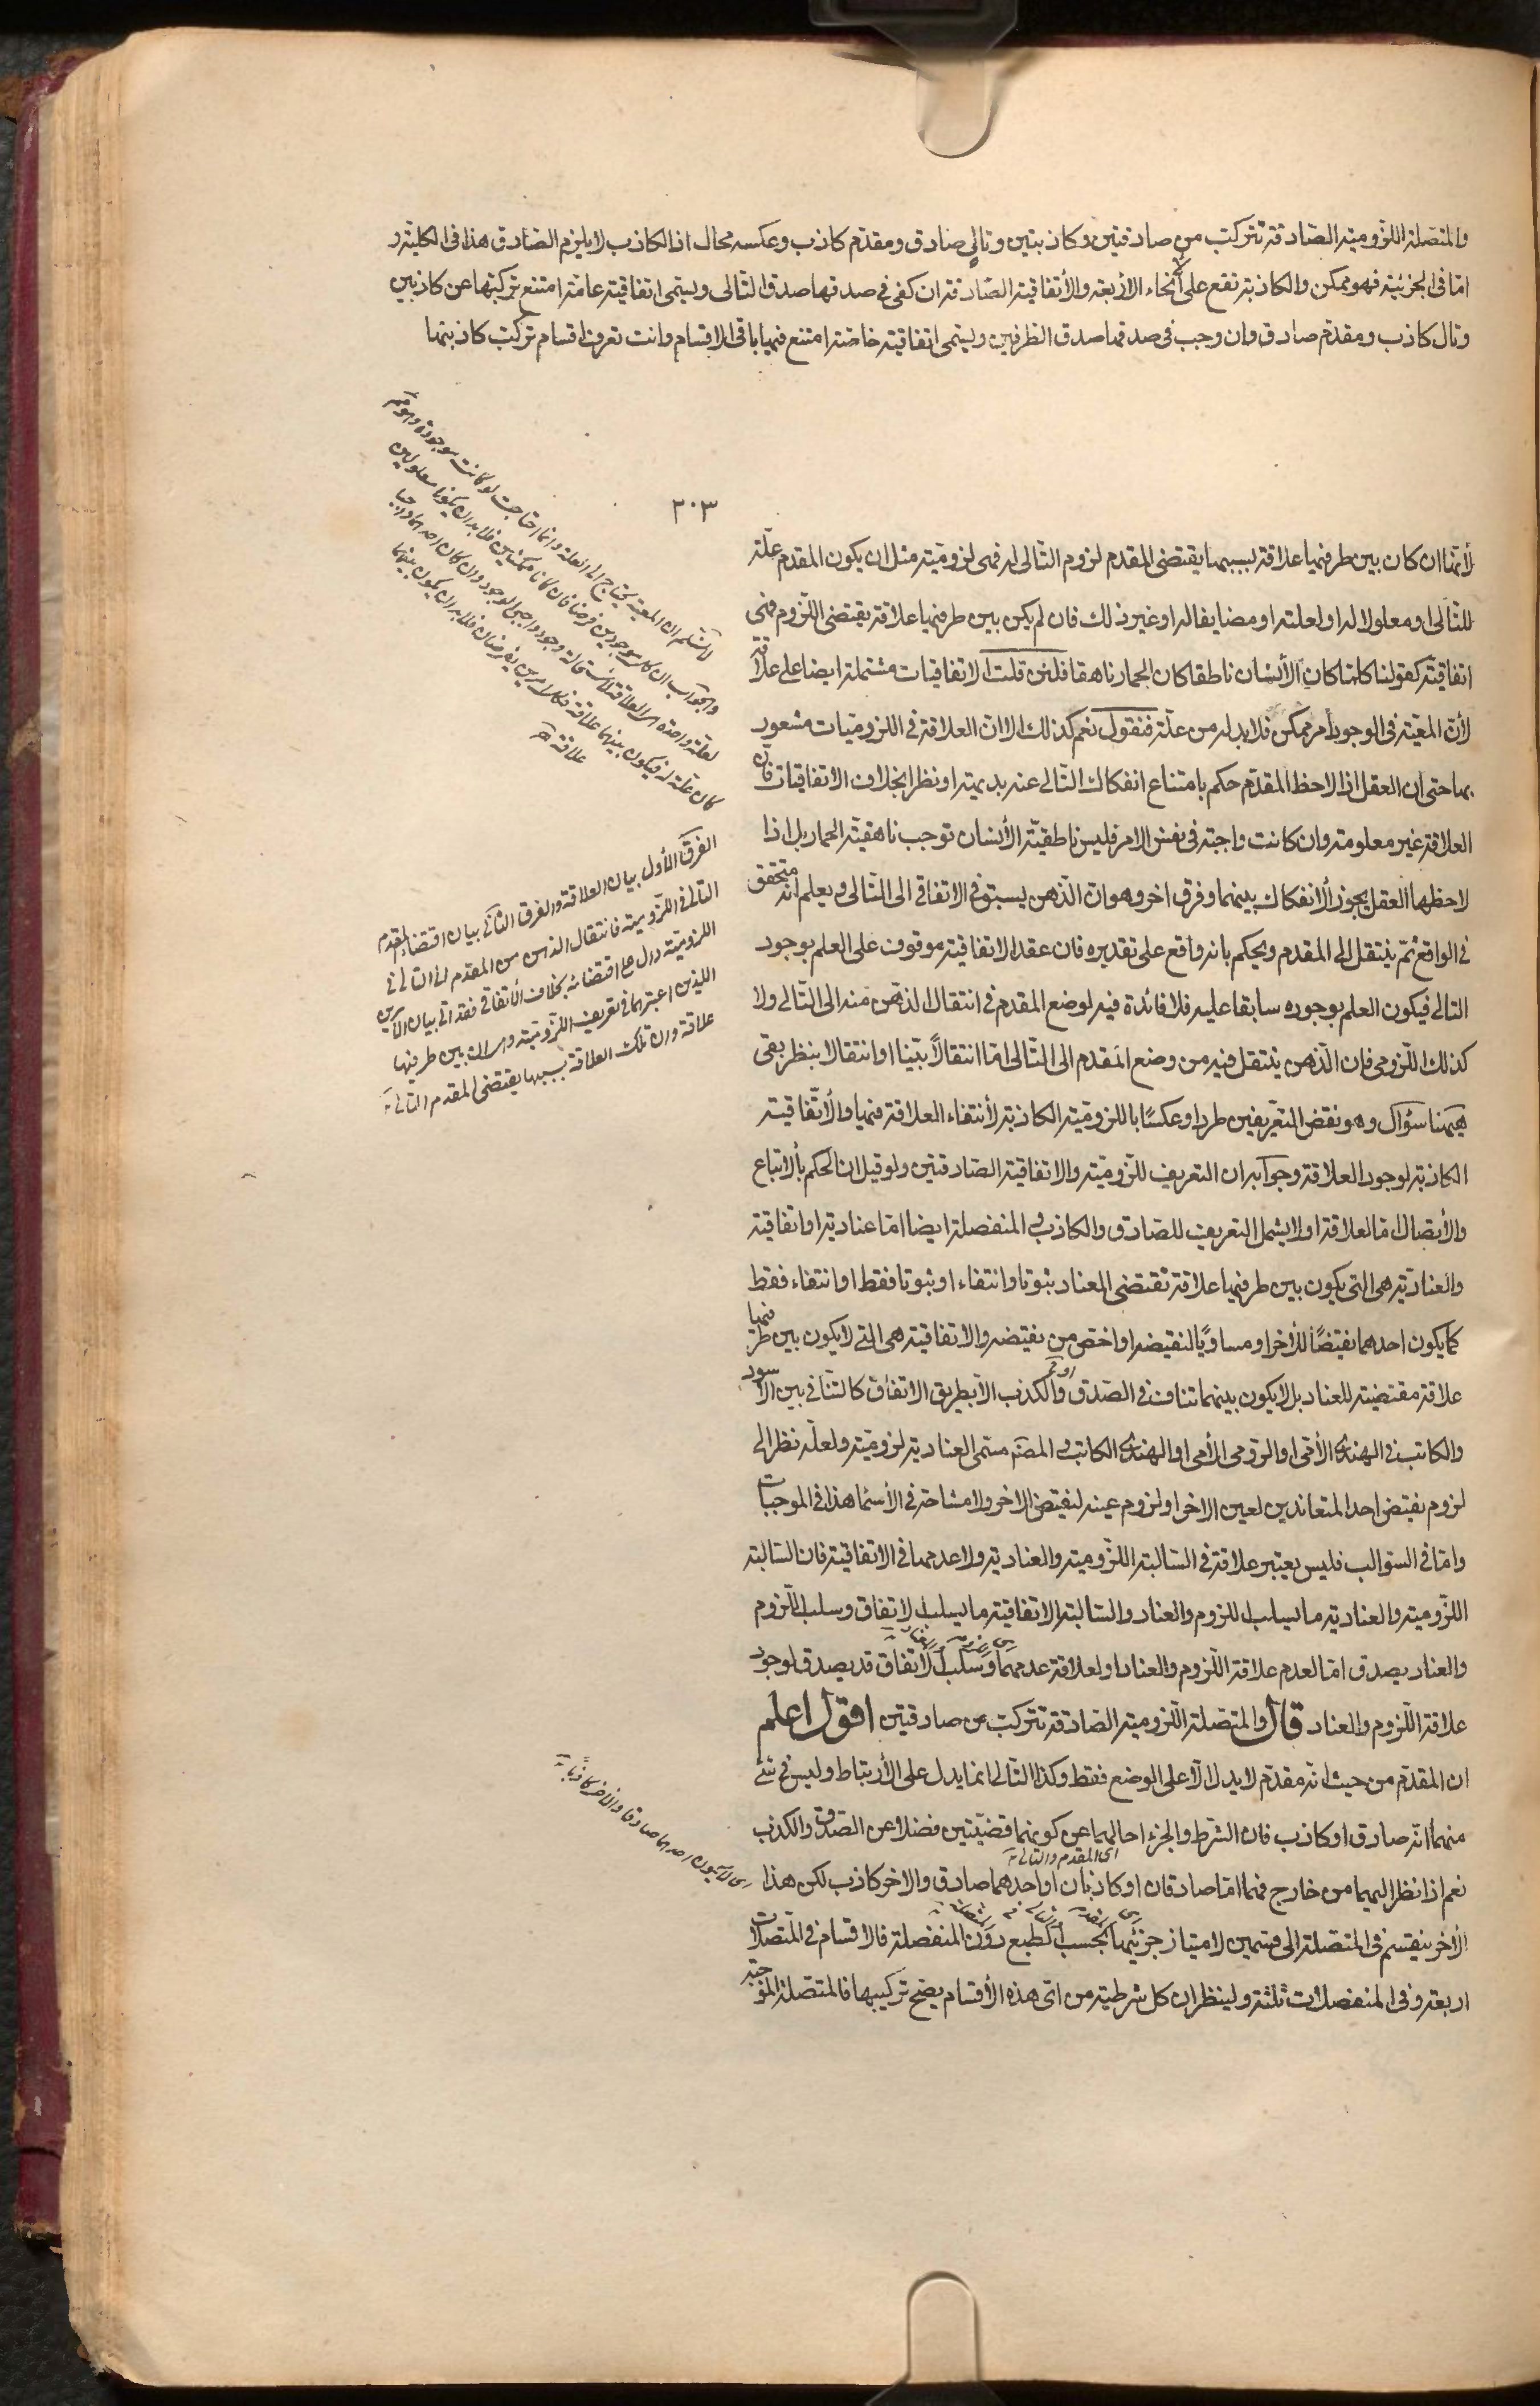 والمتصلة اللزومية الصادقة تتركب من صادقتين وكاذبتين وتالي صادق ومقدم كاذب وعكسه محال اذ الكاذب لا يلزم الصادق هذا في الكلية و
اما في الجزئية فهو ممكن والكاذبة تقع على الأنحاء الأربعة والأتفاقية الصادقة ان كفى في صدقها صدق التالى ويسمى اتفاقية عامة امتنع تركيبها عن كاذبين
وتال كاذب ومقدم صادق وان وجب في صدقها صدق الطرفين ويسمى اتفاقية خاصة امتنع فيها باقي الاقسام وانت تعرف اقسام تركب كاذبتهما
٢٠٣
لأنها ان كان بين طرفيها علاقة بسببها يقتضى المقدم لزوم التالى له فهى لزومية مثل ان يكون المقدم علة
للتالى او معلولا له او لعلته او مضايفا له او غير ذلك فان لم يكن بين طرفيها علاقة يقتضى اللزوم فهى
اتفاقية كقولنا كلما كان الأنسان ناطقا كان الحمار ناهقا فلئن قلت الاتفاقيات مشتملة ايضا على علاقة
لأن المعية في الوجود أمر ممكن فلا بد له من علة فنقول نعم كذلك الا ان العلاقة في اللزوميات مشعور
بها حتى ان العقل اذا لاحظ المقدم حكم بامتناع انفكاك التالى عنه بديهة او نظرا بخلاف الاتفاقيات فان
العلاقة غير معلومة وان كانت واجبة في نفس الامر فليس ناطقية الأنسان توجب ناهقية الحمار بل اذا
لاحظهما العقل يجوز الأنفكاك بينهما وفرق اخر وهو ان الذهن يسبق في الاتفاقى الى التالى ويعلم انه متحقق
في الواقع ثم ينتقل الى المقدم ويحكم بانه واقع على تقديره فان عقد الاتفاقية موقوف على العلم بوجود
التالى فيكون العلم بوجوده سابقا عليه فلا فائدة فيه لوضع المقدم في انتقال الذهن منه الى التالى ولا
كذلك اللزومى فان الذهن ينتقل فيه من وضع المقدم الى التالى اما انتقالاً بينا او انتقالا بنظر بقى
هيهنا سؤال وهو نقض التعريفين طردا وعكسًا باللزومية الكاذبة لأنتفاء العلاقة فيها والأتفاقية
الكاذبة لوجود العلاقة وجوابه ان التعريف للزومية والاتفاقية الصادقتين ولو قيل ان الحكم بالاتباع
والأتصال اما لعلاقة اولا يشمل التعريف للصادق والكاذب والمنفصلة ايضا اما عنادية او اتفاقية
والعنادية هى التى يكون بين طرفيها علاقة تقتضى العناد ثبوتا وانتفاء او ثبوتا فقط او انتفاء فقط
كما يكون احدهما نقيضًا للأخر او مساويًا لنقيضه او اخص من نقيضه والاتفاقية هى التى لا يكون بين طرفيها
علاقة مقتضية للعناد بل لا يكون بينهما تناف في الصدق والكذب الا بطريق الاتفاق كالتنافي بين الأسود
والكاتب في الهندى الأمى او الرومى الأمى او الهندى الكاتب والمصنم سمى العنادية لزومية ولعله نظر الى
لزوم نقيض احد المتعاندين لعين الاخر او لزوم عينه لنقيض الاخر ولا مشاحة في الأسماء هذا في الموجبات
واما في السوالب فليس يعتبر علاقة في السالبة اللزومية والعنادية ولا عدمها في الاتفاقية فان السالبة
اللزومية والعنادية ما يسلب اللزوم والعناد والسالبة الاتفاقية ما يسلب الاتفاق وسلب اللزوم
والعناد يصدق اما لعدم علاقة اللزوم والعناد او لعلاقة عدمهما وسلب الاتفاق قد يصدق لوجود
علاقة اللزوم والعناد قال والمتصلة اللزومية الصادقة تتركب من صادقتين اقول اعلم
ان المقدم من حيث انه مقدم لا يدل الا على الوضع فقط وكذا التالى انما يدل على الأرتباط وليس في شئ
منهما انه صادق او كاذب فان الشرط والجزء احالهما عن كونهما قضيتين فضلا عن الصدق والكذب
اى المقدم والتالى
نعم اذا نظر اليهما من خارج فهما اما صادقان او كاذبان او احدهما صادق والاخر كاذب لكن هذا
الأخر ينقسم في المتصلة الى قسمين لامتياز جزئيها بحسب الطبع دون المنفصلة فالاقسام في المتصلات
اربعة وفى المنفصلات ثلثة ولينظر ان كل شرطية من اى هذه الأقسام يصح تركيبها فالمتصلة الموجبة
الفرق الأول بيان العلاقة والفرق الثانى بيان اقتضاء المقدم
التالى في اللزومية فانتقال الذهن من المقدم الى التالى في
اللزومية دال على اقتضائه بخلاف الأتفاقى فقد اتى ببيان الأمرين
اللذين اعتبرهما في تعريف اللزومية وهو ان بين طرفيها
علاقة وان تلك العلاقة بسببها يقتضى المقدم التالى